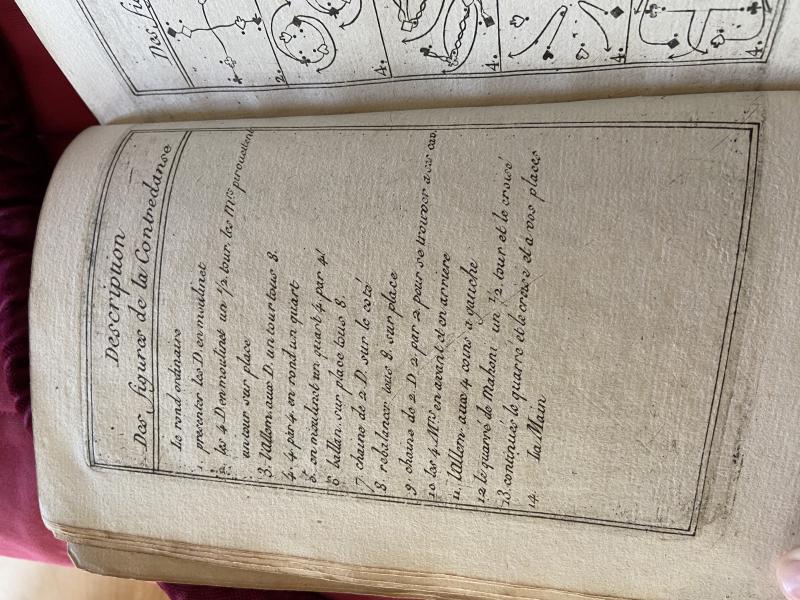 Description
Des figures de la Contredanse
Le rond ordinaire
1. presenter les D. en moulinet
2. les 4 D en moulinet un 1/2 tour les Mrs pirouettent
un tour sur place
3. l'Allem. aux D. un tour tous 8.
4. 4 par 4. en rond un quart
5. en moulinet un quart 4. par 4
6. ballan. sur place tous 8.
7. chaine de 2 D. sur le coté
8. rebalancer tous 8. sur place
9. chaine de 2. D. 2 par 2. pour se trouver a
10. les 4. Mrs en avant et en arriere
11. l'Allem aux 4 coins a gauche
12. le quarré de Mahoni un 1/2 tour et le croisé
13. continués le quarré et le croisé et a vos places
14. la Main
Des
2.
4.
4.
4.
4.